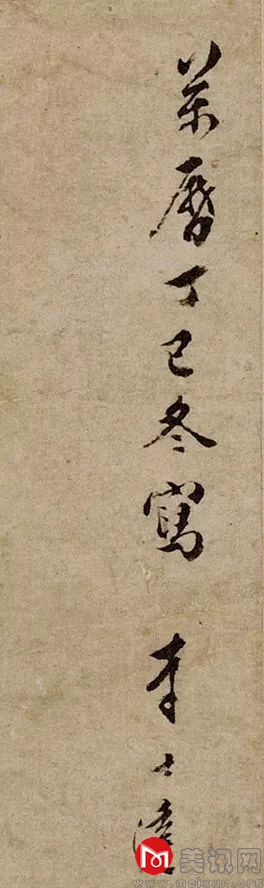 萬曆丁巳冬寫 李士達
美讯网
www.meixun.org